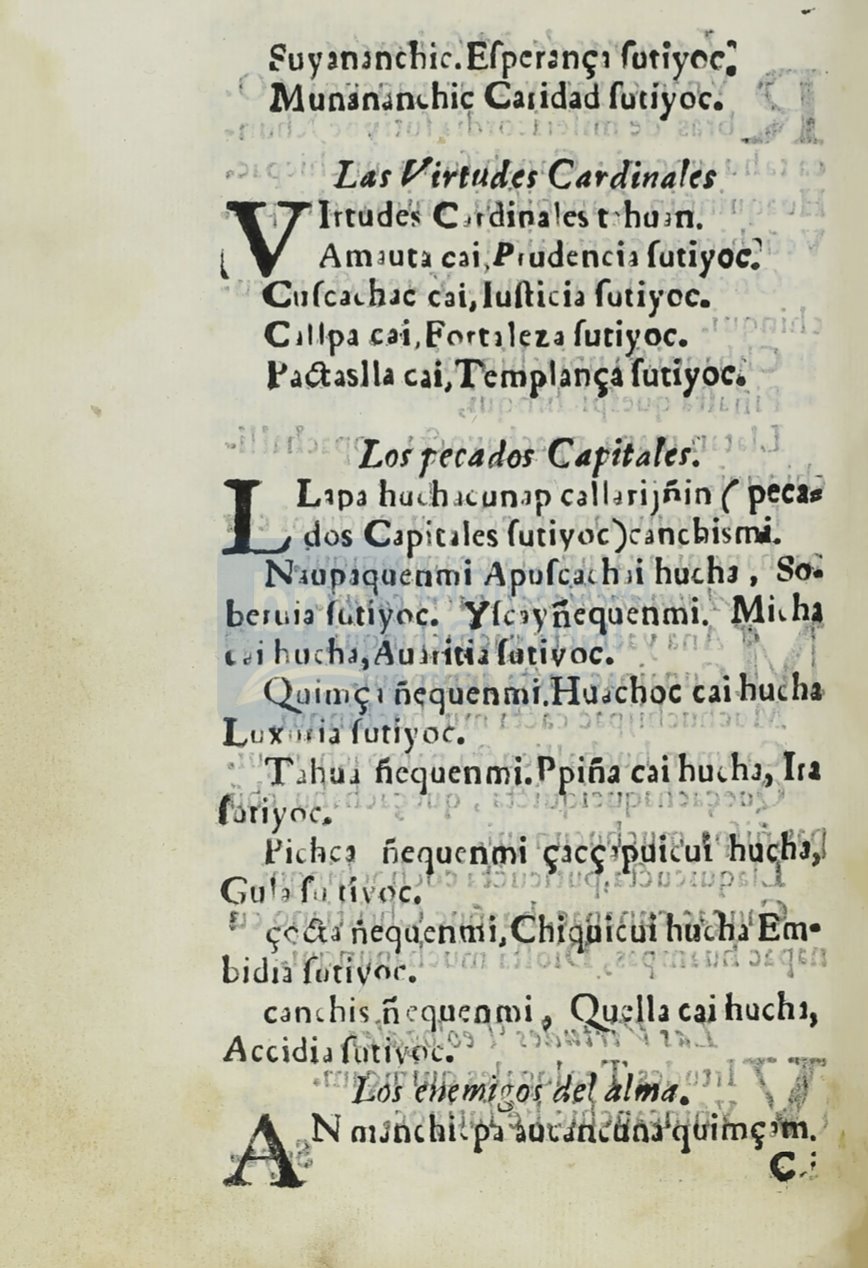 Suyananchic. Eſperança ſutiyoc.
Munananchic Caridad ſutiyoc.
Las Virtudes Cardinales
VIrtudes Cardinales tahuan.
Amauta cai, Prudencia ſutiyoc.
Cuſcachac cai, Iuſticia ſutiyoc.
Callpa cai, Fortaleza ſutiyoc.
Pactaslla cai, Templança ſutiyoc.
Los pecados Capitales.
LLapa huchacunap callarijñin (peca-
dos Capitales ſutiyoc) canchismi.
Naupaquenmi Apuſcachai hucha, So-
beruia ſutiyoc. Yſcayñequenmi. Micha
cai hucha, Auaritia ſutiyoc.
Quimça ñequenmi. Huachoc cai hucha
Luxuria ſutiyoc.
Tahua ñequenmi. Ppiña cai hucha, Ira
ſutiyoc.
Pichca ñequenmi çacçapuicui hucha,
Gula ſutiyoc.
çocta ñequenmi, Chiquicui hucha Em-
bidia ſutiyoc.
canchis ñequenmi, Quella cai hucha,
Accidia ſutiyoc.
Los enemigos del alma.
AN manchicpa aucancuna quimçam.
C